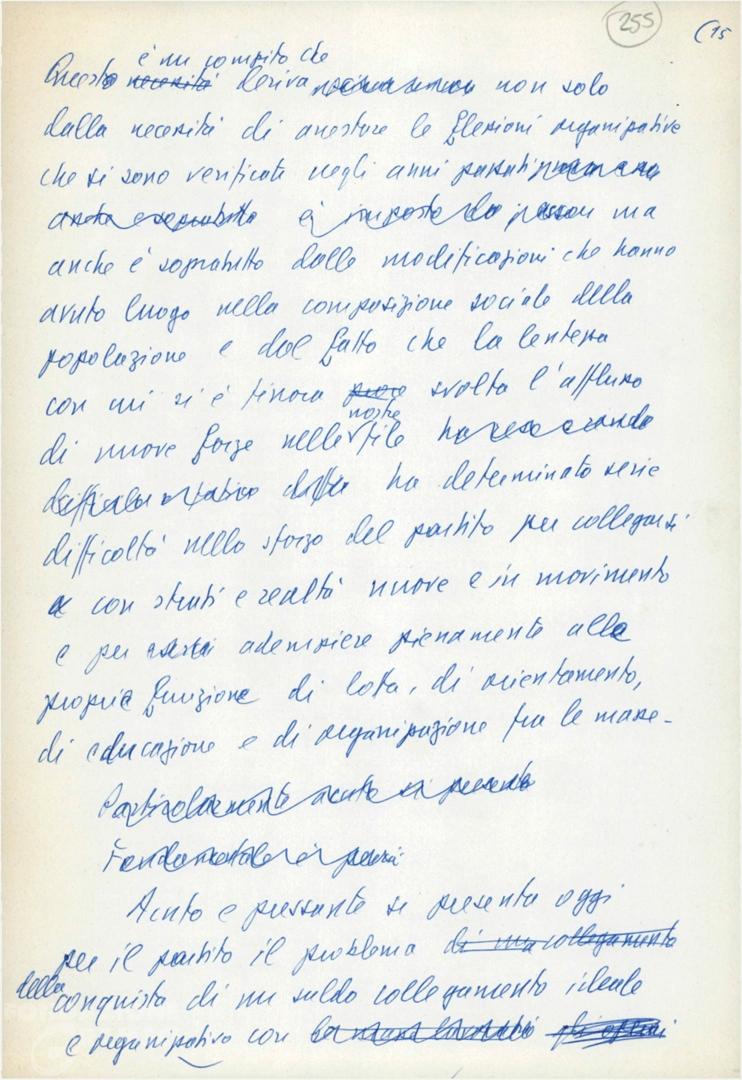 255
(15
è un compito che
Questo necessità deriva non solo
dalla necessità di arrestare le flessioni organizzative
che si sono verificate negli anni passati
anche e sopratutto ci imposto da ma
anche e sopratutto dalle modificazioni che hanno
avuto luogo nella composizione sociale della
popolazione e dal fatto che la lentezza
con cui si è finora svolto l'afflusso
nostre
di nuove forze nelle file ha reso
difficoltà ha determinato serie
difficoltà nello sforzo del partito per collegarsi
a con strati e realtà nuove e in movimento
e per adempiere pienamente alla
propria funzione di lotta, di orientamento,
di educazione e di organizzazione tra le masse.
Particolarmente acuto si presenta
Fondamentale è
Acuto e pressante si presenta oggi
per il partito il problema di un collegamento
della conquista di un saldo collegamento ideale
e organizzativo con gli operai